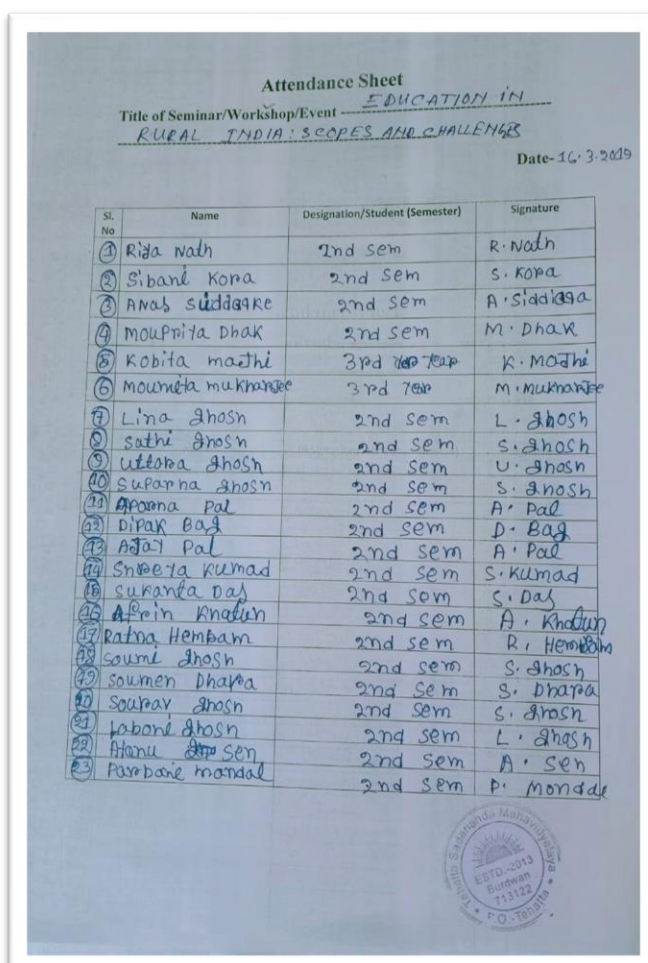 Attendance Sheet
Title of Seminar/Workshop/Event - EDUCATION IN
RURAL INDIA: SCOPES AND CHALLENGES
Date- 16.3.2019
Sl. No Name Designation/Student (Semester) Signature
1 Riya Nath 2nd Sem R. Nath
2 Sibani Kora 2nd Sem S. Kora
3 Anas 2nd Sem A. Siddiqqa
4 Moupriya Dhak 2nd Sem M. Dhak
5 Kobita majhi 3rd Year K. Majhi
6 Moumita mukharjee 3rd Year M. Mukharjee
7 Lina Ghosh 2nd Sem L. Ghosh
8 Sathi Ghosh 2nd Sem S. Ghosh
9 Uttora Ghosh 2nd Sem U. Ghosh
10 Suparna Ghosh 2nd Sem S. Ghosh
11 Aparna Pal 2nd Sem A. Pal
12 Dipak Bag 2nd Sem D. Bag
13 Ajay Pal 2nd Sem A. Pal
14 Shreeya Kumad 2nd Sem S. Kumad
15 Sukanta Das 2nd Sem S. Das
16 Afrin Khatun 2nd Sem A. Khatun
17 Ratna Hembam 2nd Sem R. Hembam
18 Soumi Ghosh 2nd Sem S. Ghosh
19 Soumen Dhara 2nd Sem S. Dhara
20 Sourav Ghosh 2nd Sem S. Ghosh
21 Laboni Ghosh 2nd Sem L. Ghosh
22 Atanu Sen 2nd Sem A. Sen
23 mandal 2nd Sem P. Mondal
Tehatta Sadananda Mahavidyalaya
ESTD.-2013
Burdwan
713122
P.O.-Tehatta